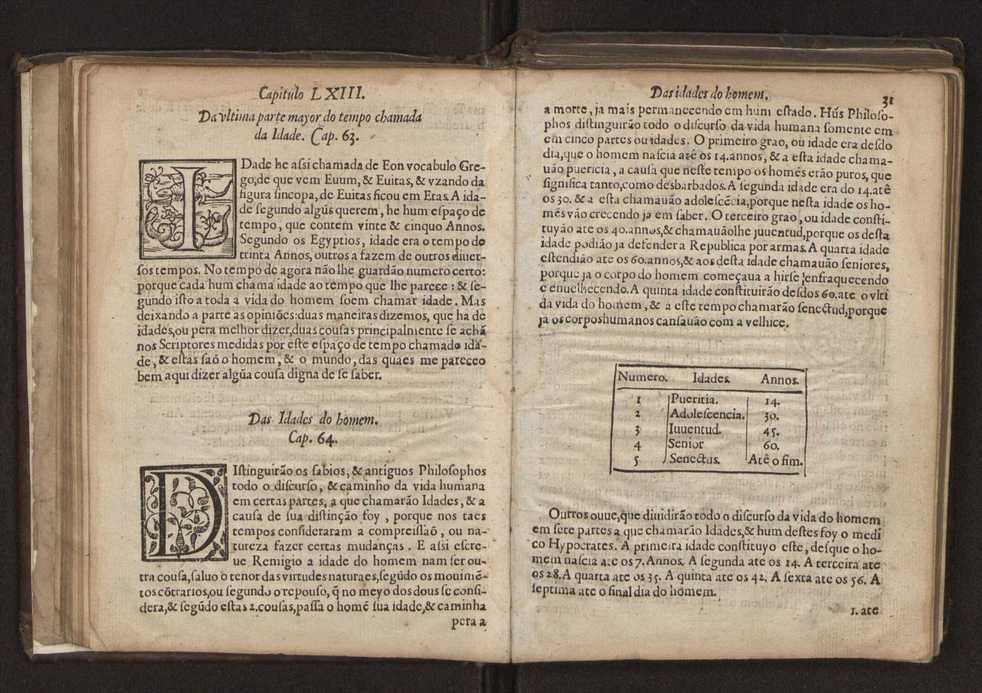 Capitulo LXIII.
Da vltima parte mayor do tempo chamada
da Idade. Cap. 63.
IDade he assi chamada de Eon vocabulo Gre-
go, de que vem Euum, & Euitas, & vzando da
figura sincopa, de Euitas ficou em Etas. A ida-
de segundo algũs querem, he hum espaço de
tempo, que contem vinte & cinquo Annos.
Segundo os Egyptios, idade era o tempo de
trinta Annos, outros a fazem de outros diuer-
sos tempos. No tempo de agora não lhe guardão numero certo:
porque cada hum chama idade ao tempo que lhe parece: & se-
gundo isto a toda a vida do homem soem chamar idade. Mas
deixando a parte as opiniões: duas maneiras dizemos, que ha de
idades, ou pera melhor dizer, duas cousas principalmente se achã
nos Scriptores medidas por este espaço de tempo chamado ida-
de, & estas saõ o homem, & o mundo, das quaes me pareceo
bem aqui dizer algũa cousa digna de se saber.
Das Idades do homem.
Cap. 64.
DIstinguirão os sabios, & antiguos Philosophos
todo o discurso, & caminho da vida humana
em certas partes, a que chamarão Idades, & a
causa de sua distinção foy, porque nos taes
tempos consideraram a compreissaõ, ou na-
tureza fazer certas mudanças. E assi escre-
ue Remigio a idade do homem nam ser ou-
tra cousa, saluo o tenor das virtudes naturaes, segũdo os mouimẽ-
tos cõtrarios, ou segundo o repouso, q̃ no meyo dos dous se consi-
dera, & segũdo estas 2. cousas, passa o homẽ sua idade, & caminha
pera a
Das idades do homem. 31
a morte, ja mais permanecendo em hum estado. Hũs Philoso-
phos distinguirão todo o discurso da vida humana somente em
em cinco partes ou idades. O primeiro grao, ou idade era desdo
dia, que o homem nascia atê os 14. annos, & a esta idade chama-
uão puericia, a causa que neste tempo os homẽs erão puros, que
significa tanto, como desbarbados. A segunda idade era do 14. atê
os 30. & a esta chamauão adolescẽcia, porque nesta idade os ho-
mẽs vão crecendo ja em saber. O terceiro grao, ou idade consti-
tuyão ate os 40. annos, & chamauãolhe juuentud, porque os desta
idade podião ja defender a Republica por armas. A quarta idade
estendião ate os 60. annos, & aos desta idade chamauão seniores,
porque ja o corpo do homem começaua a hirse enfraquecendo
e enuelhecendo. A quinta idade constituirão desdos 60. ate o vlti
da vida do homem, & a este tempo chamarão senectud, porque
ja os corpos humanos cansauão com a velhice.
Numero. Idades. Annos.
1 Pueritia. 14.
2 Adolescencia. 30.
3 Iuuentud. 45.
4 Senior 60.
5 Senectus. Atê o fim.
Outros ouue, que diuidirão todo o discurso da vida do homem
em sete partes a que chamarão Idades, & hum destes foy o medi
co Hypocrates. A primeira idade constituyo este, desque o ho-
mem nascia ate os 7. Annos. A segunda ate os 14. A terceira ate
os 28. A quarta ate os 35. A quinta ate os 42. A sexta ate os 56. A
septima ate o final dia do homem.
1. ate